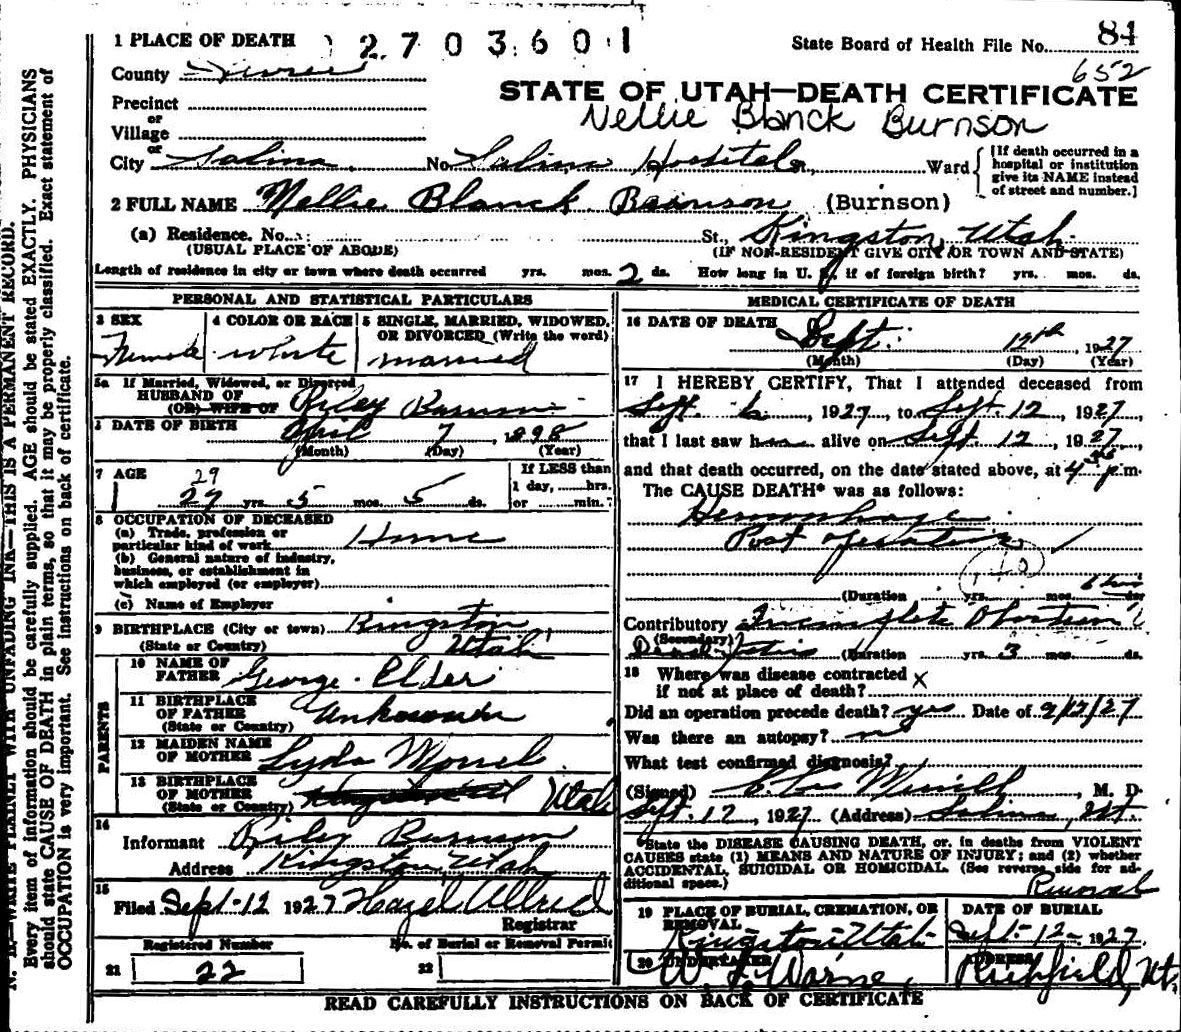 1 PLACE OF DEATH 2703601
State Board of Health File No. 84
County Sevier
652
STATE OF UTAH—DEATH CERTIFICATE
Precinct
or
Village
Nellie Blanck Burnson
or
City Salina No. Salina Hospital Ward
[If death occurred in a hospital or institution give its NAME instead of street and number.]
2 FULL NAME Nellie Blanck Burnson (Burnson)
(a) Residence. No. St., Kingston, Utah
(USUAL PLACE OF ABODE) (IF NON-RESIDENT GIVE CITY OR TOWN AND STATE)
Length of residence in city or town where death occurred yrs. mos. 2 ds. How long in U. S. if of foreign birth? yrs. mos. ds.
PERSONAL AND STATISTICAL PARTICULARS
3 SEX
Female
4 COLOR OR RACE
White
5 SINGLE, MARRIED, WIDOWED, OR DIVORCED (Write the word)
married
5a If Married, Widowed, or Divorced
HUSBAND OF
(OR) WIFE OF Riley Burnson
DATE OF BIRTH April 7, 1898
(Month) (Day) (Year)
7 AGE
29
29 yrs. 5 mos. 5 ds.
If LESS than
1 day, hrs.
or min.?
8 OCCUPATION OF DECEASED
(a) Trade, profession or
particular kind of work Home
(b) General nature of industry,
business, or establishment in
which employed (or employer)
(c) Name of Employer
9 BIRTHPLACE (City or town) Kingston
(State or Country) Utah
PARENTS
10 NAME OF
FATHER George Elder
11 BIRTHPLACE
OF FATHER Unknown
(State or Country)
12 MAIDEN NAME
OF MOTHER Lyda Morrel
13 BIRTHPLACE
OF MOTHER Utah
(State or Country)
14
Informant Riley Burnson
Address Kingston, Utah
15
Filed Sept-12 1927 Hazel Allred
Registrar
Registered Number
21 22
No. of Burial or Removal Permit
22
MEDICAL CERTIFICATE OF DEATH
16 DATE OF DEATH Sept. 12th, 1927
(Month) (Day) (Year)
17 I HEREBY CERTIFY, That I attended deceased from
Sept. 6, 1927, to Sept. 12 1927,
that I last saw her alive on Sept. 12, 1927,
and that death occurred, on the date stated above, at 4 30 p.m.
The CAUSE DEATH* was as follows:
Hemorrhage
Post operation
140
(Duration yrs. mos. 6 hrs ds.
Contributory Incomplete Abortion
(Secondary)
(Duration yrs. 3 mos. ds.
18 Where was disease contracted
if not at place of death? x
Did an operation precede death? yes Date of 9/12/27
Was there an autopsy? no
What test confirmed diagnosis?
(Signed) Merrill, M. D.
Sept. 12, 1927 (Address) Salina, Ut.
*State the DISEASE CAUSING DEATH, or, in deaths from VIOLENT
CAUSES state (1) MEANS AND NATURE OF INJURY; and (2) whether
ACCIDENTAL, SUICIDAL OR HOMICIDAL. (See reverse side for ad-
ditional space.)
Removal
19 PLACE OF BURIAL, CREMATION, OR
REMOVAL
Kingston Utah
DATE OF BURIAL
Sept-12-1927
20 UNDERTAKER
W. L. Warne,
ADDRESS
Richfield, Ut.
READ CAREFULLY INSTRUCTIONS ON BACK OF CERTIFICATE
N. B.—WRITE PLAINLY WITH UNFADING INK—THIS IS A PERMANENT RECORD.
Every item of information should be carefully supplied. AGE should be stated EXACTLY. PHYSICIANS
should state CAUSE OF DEATH in plain terms, so that it may be properly classified. Exact statement of
OCCUPATION is very important. See instructions on back of certificate.